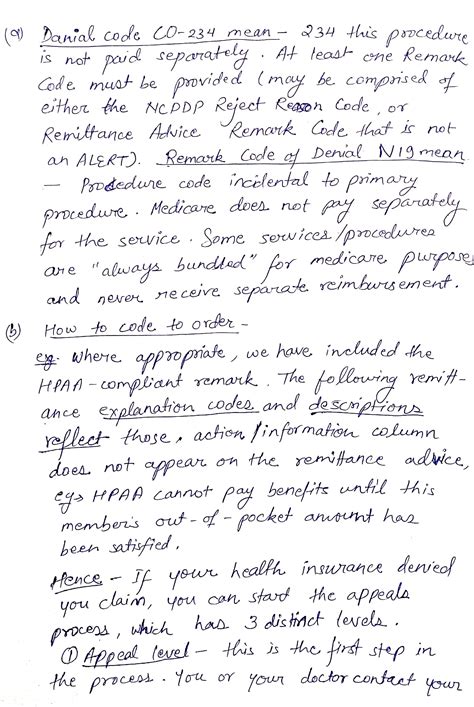 (a) Danial code CO-234 mean - 234 this procedure
is not paid separately. At least one Remark
Code must be provided (may be comprised of
either the NCPDP Reject Reason Code, or
Remittance Advice Remark Code that is not
an ALERT). Remark Code of Denial N19 mean
- Procedure code incidental to primary
procedure. Medicare does not pay separately
for the service. Some services/procedures
are "always bundled" for medicare purpose
and never receive separate reimbursement.
(b) How to code to order -
eg. Where appropriate, we have included the
HPAA-compliant remark. The following remitt-
ance explanation codes and descriptions
reflect those, action/information column
does not appear on the remittance advice,
eg→ HPAA cannot pay benefits until this
member's out-of-pocket amount has
been satisfied.
Hence - If your health insurance denied
you claim, you can start the appeals
process, which has 3 distinct levels.
① Appeal level - this is the first step in
the process. You or your doctor contact your